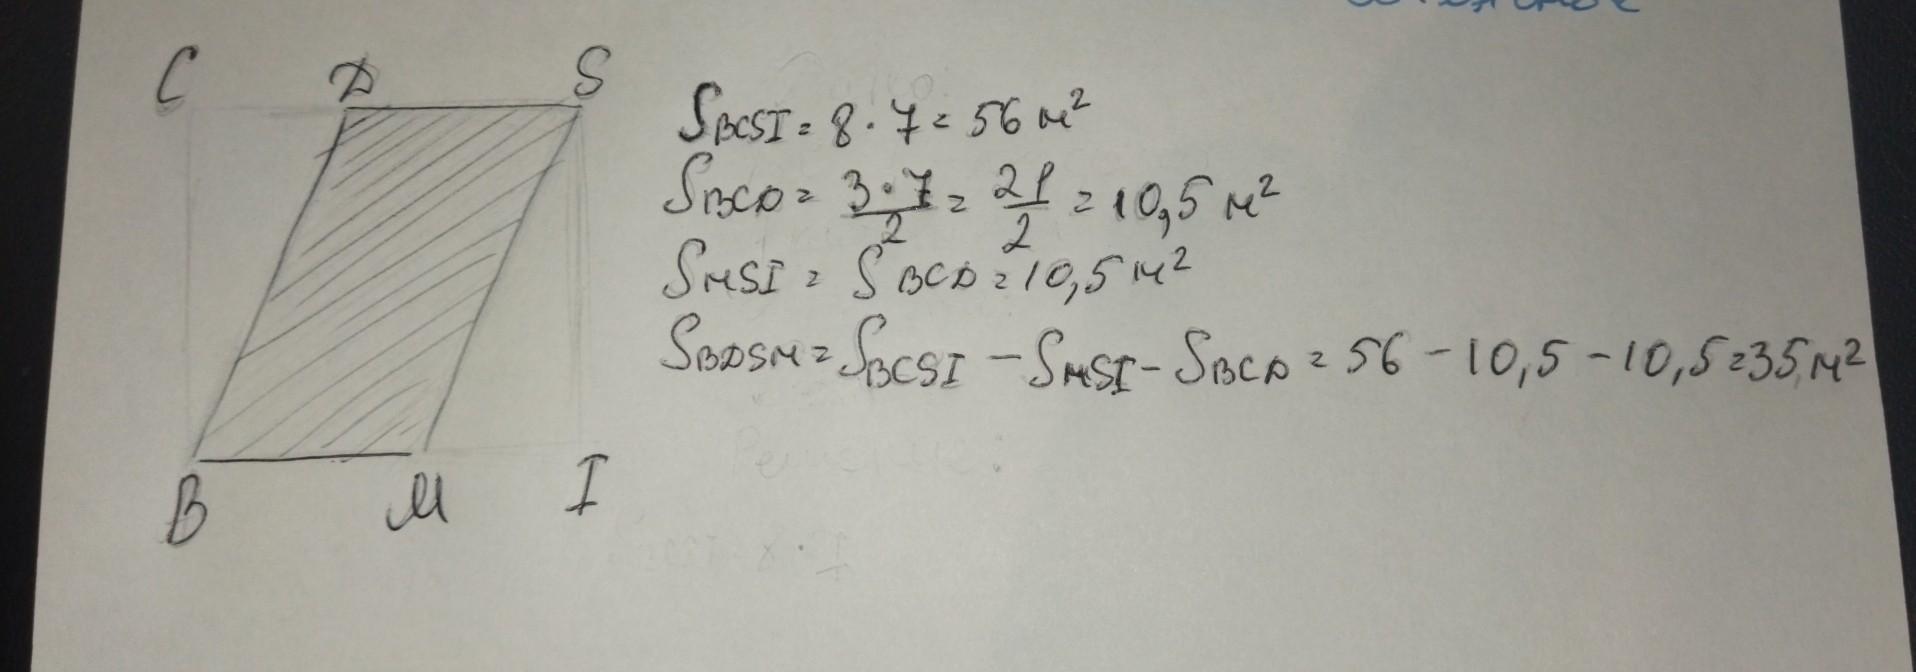 C D S
S BCSI = 8 · 7 = 56 м²
S BCD = 3·7/2 = 21/2 = 10,5 м²
S MSI = S BCD = 10,5 м²
S BDSM = S BCSI - S MSI - S BCD = 56 - 10,5 - 10,5 = 35 м²
B M I